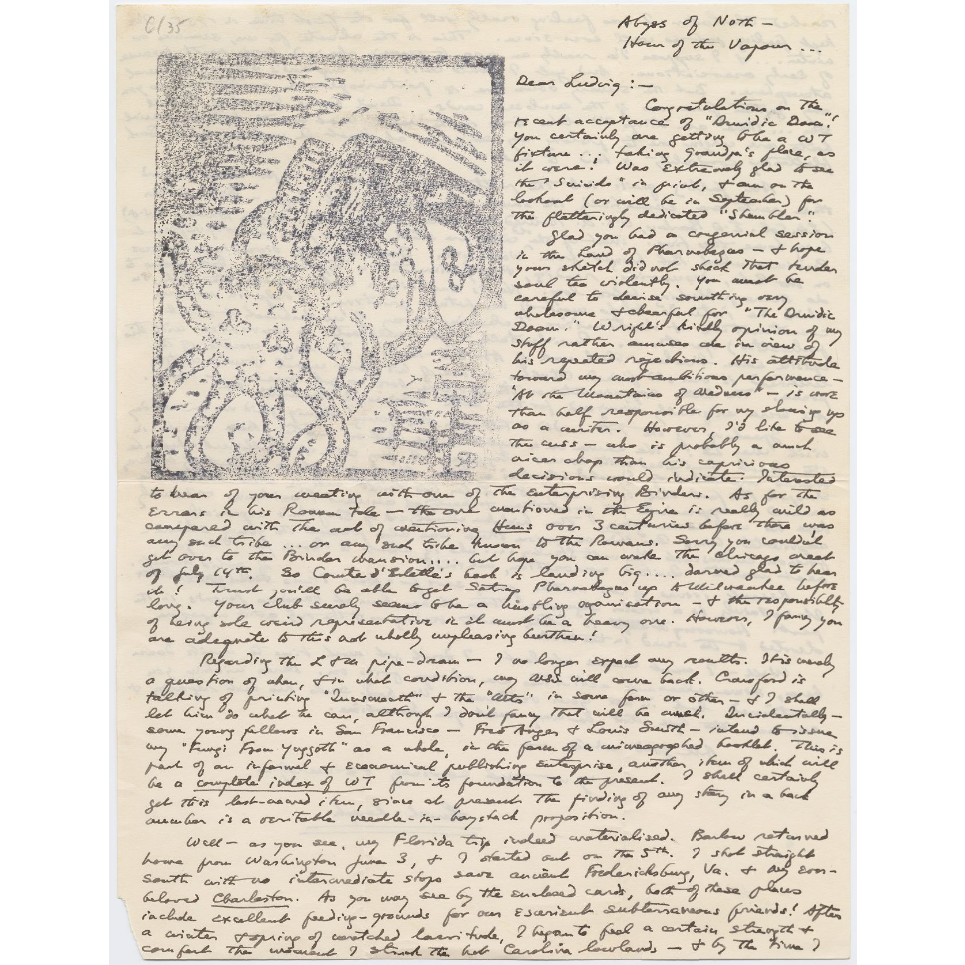 6/35
Abyss of Noth—
Hour of the Vapour ...
Dear Ludvig:—
Congratulations on the
recent acceptance of "Druidic Doom"!
You certainly are getting to be a WT
fixture ... taking Grandpa's place, as
it were! Was extremely glad to see
the "Suicide" in print, & am on the
lookout (or will be in September) for
the flatteringly dedicated "Shambler".
Glad you had a congenial session
in the land of Pharnabazus — & hope
your sketch did not shock that tender
soul too violently. You must be
careful to devise something very
wholesome & cheerful for "The Druidic
Doom." Wright's kindly opinion of my
stuff rather amuses me in view of
his repeated rejections. His attitude
toward my most ambitious performance—
"At the Mountains of Madness" — is more
than half responsible for my slowing up
as a writer. However, I'd like to see
the cuss — who is probably a much
nicer chap than his capricious
decisions would indicate. Interested
to hear of your meeting with one of the enterprising Binders. As for the
errors in his Roman tale — the one mentioned in the Eyrie is really mild as
compared with the act of mentioning Huns over 3 centuries before there was
any such tribe ... or any such tribe known to the Romans. Sorry you couldn't
get over to the Binder mansion.... but hope you can make the Chicago meet
of July 14th. So Comte d'Erlette's book is landing big.... darned glad to hear
it! Trust you'll be able to get Satrap Pharnabazus up to Milwaukee before
long. Your club surely seems to be a bustling organisation — & the responsibility
of being sole weird representative in it must be a heavy one. However, I fancy you
are adequate to this not wholly unpleasing burthen!
Regarding the L & M pipe-dream — I no longer expect any results. It is merely
a question of when, & in what condition, my MSS will come back. Crawford is
talking of printing "Innsmouth" & the "Mts" in some form or other — & I shall
let him do what he can, although I don't fancy that will be much. Incidentally—
some young fellows in San Francisco — Fred Anger & Louis Smith — intend to issue
my "Fungi From Yuggoth" as a whole, in the form of a mimeographed booklet. This is
part of an informal & economical publishing enterprise, another item of which will
be a complete index of WT from its foundation to the present. I shall certainly
get this last-named item, since at present the finding of any story in a back
number is a veritable needle-in-haystack proposition.
Well — as you see, my Florida trip indeed materialised. Barlow returned
home from Washington June 3, & I started out on the 5th. I shot straight
south with no intermediate stops save ancient Fredericksburg, Va. & my ever-
beloved Charleston. As you may see by the enclosed cards, both of these places
include excellent feeding-grounds for our esurient subterraneous friends! After
a winter & spring of wretched lassitude, I began to feel a certain strength &
comfort the moment I struck the hot Carolina lowlands — & by the time I